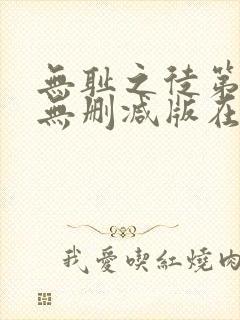 無耻之徒第
無删减版在
我愛喫紅燒肉